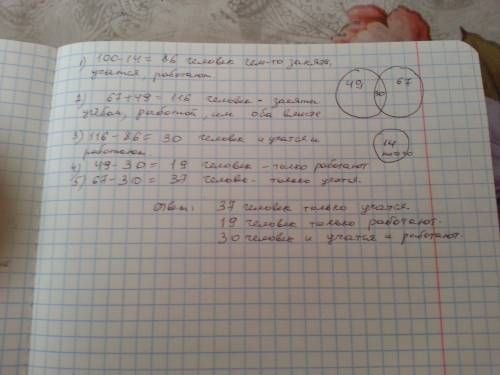 1) 100-14 = 86 человек чем-то заняты,
учатся, работают
49 30 67
2) 67+49 = 116 человек - заняты
учёбой, работой, или оба вместе
3) 116-86 = 30 человек и учатся и
работают
14
4) 49-30 = 19 человек - только работают
5) 67-30 = 37 человек - только учатся.
Ответ: 37 человек только учатся.
19 человек только работают.
30 человек и учатся и работают.